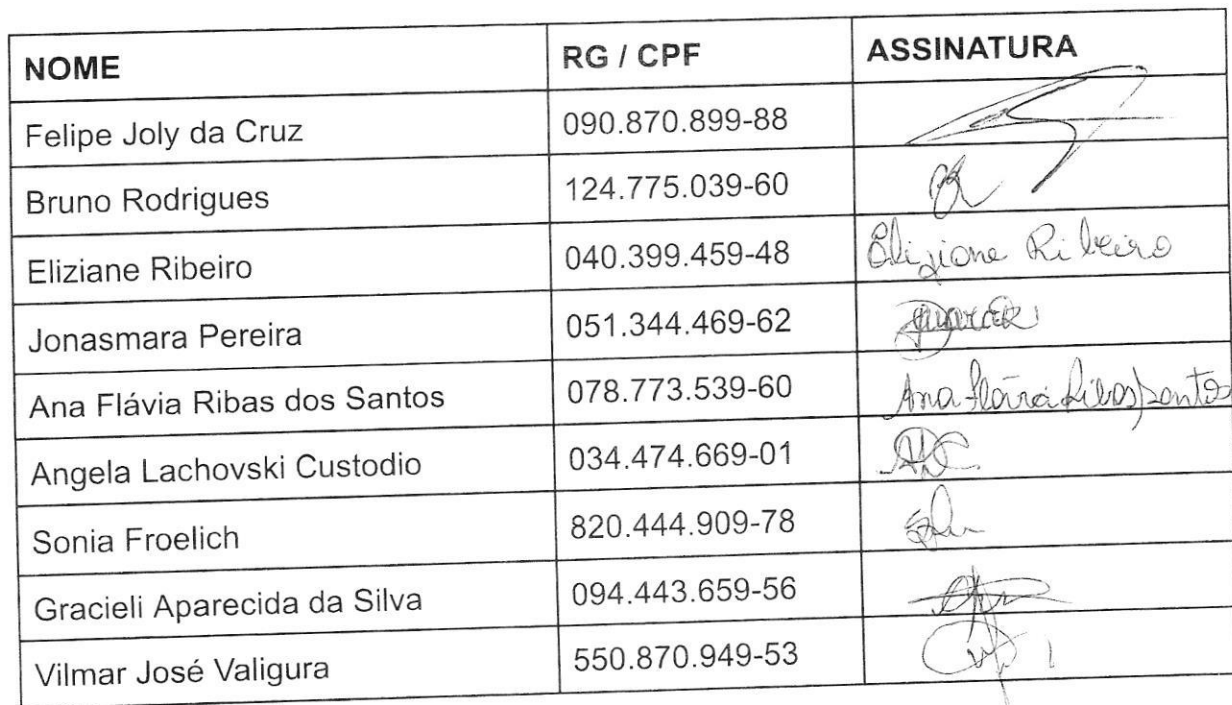 NOME RG / CPF ASSINATURA
Felipe Joly da Cruz 090.870.899-88
Bruno Rodrigues 124.775.039-60
Eliziane Ribeiro 040.399.459-48 Eliziane Ribeiro
Jonasmara Pereira 051.344.469-62
Ana Flávia Ribas dos Santos 078.773.539-60 Ana Flávia Ribas Santos
Angela Lachovski Custodio 034.474.669-01
Sonia Froelich 820.444.909-78
Gracieli Aparecida da Silva 094.443.659-56
Vilmar José Valigura 550.870.949-53